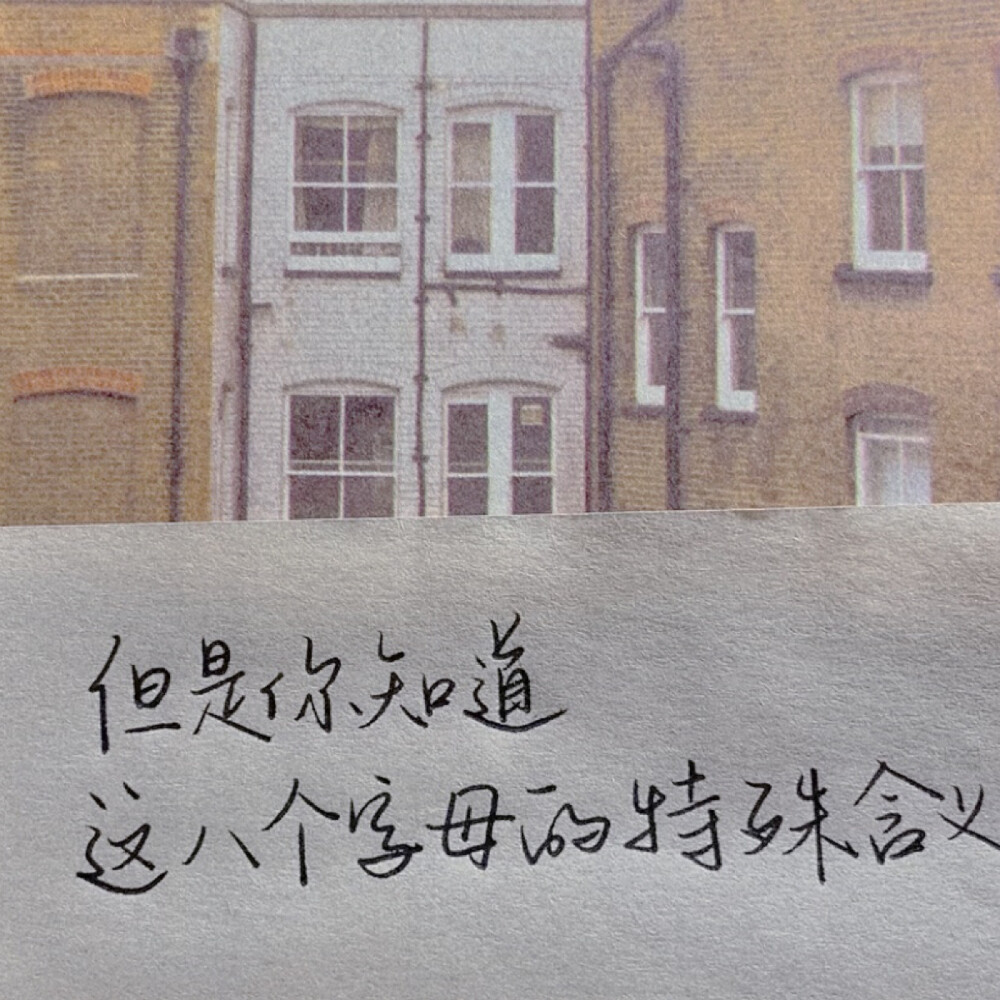 但是你知道
这八个字母的特殊含义